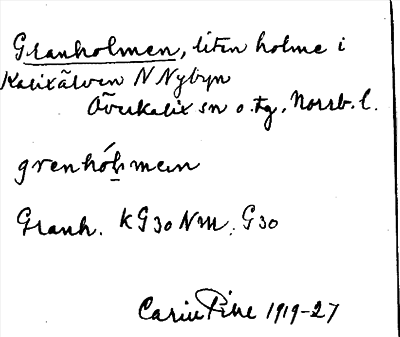 Granholmen, liten holme i
Kalixälven N Nybyn
Överkalix sn o. tg, Norrb. l.
grenhólmen
Granh. KG30 NM. G30
Carin Pihl 1919-27